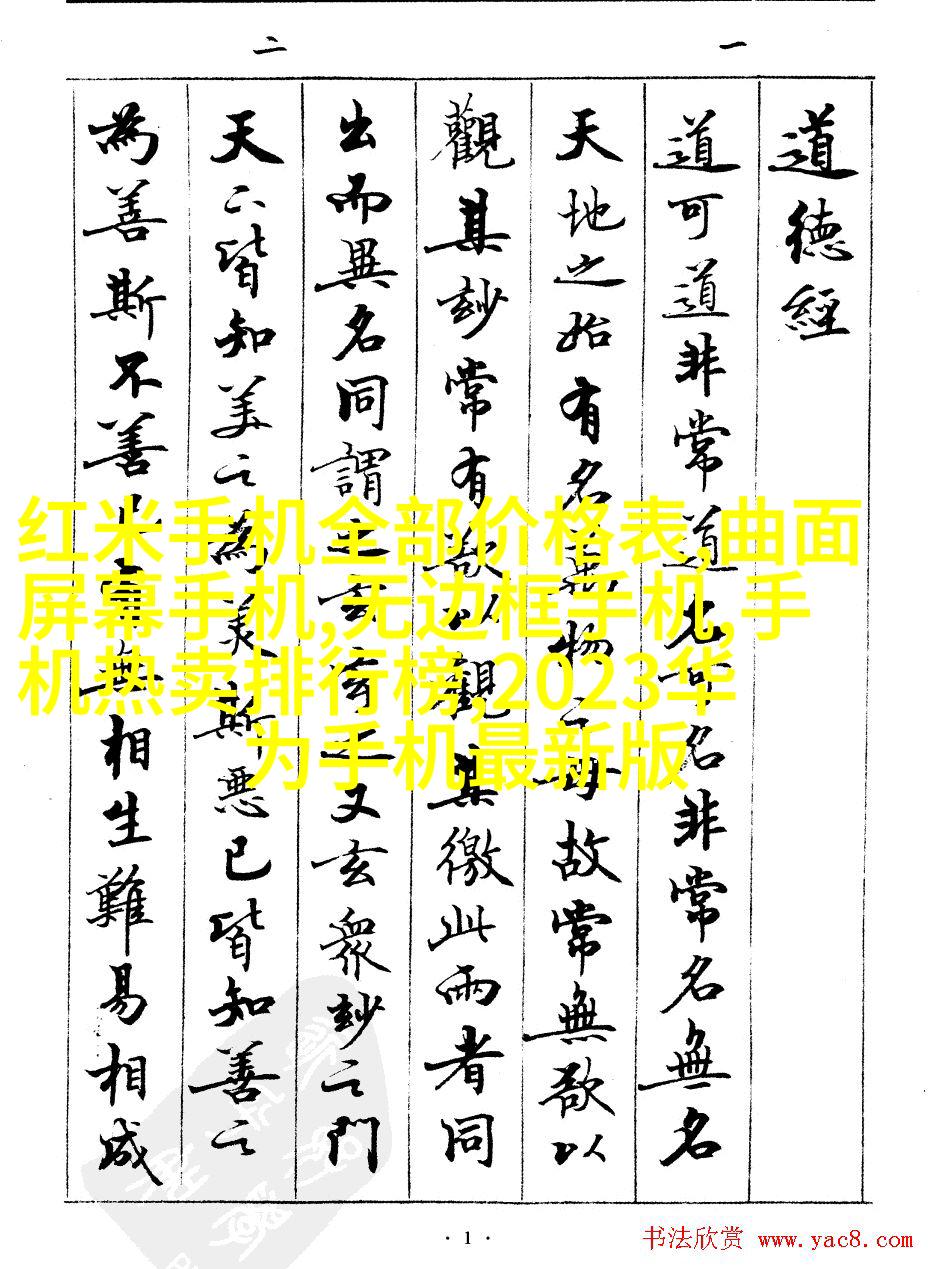 一
二
道德經
道可道非常道名可名非常名無名
天地之始有名萬物之母故常無欲以
觀其玅常有欲以觀其徼此兩者同
出而異名同謂之玄玄之又玄眾玅之門
天下皆知美之為美斯惡已皆知善之
為善斯不善已有無相生難易相成
红米手机全部价格表,曲面
屏幕手机,无边框手机,手
机热卖排行榜,2023华
为手机最新版
· 1 ·
书法欣赏 www.yac8.com